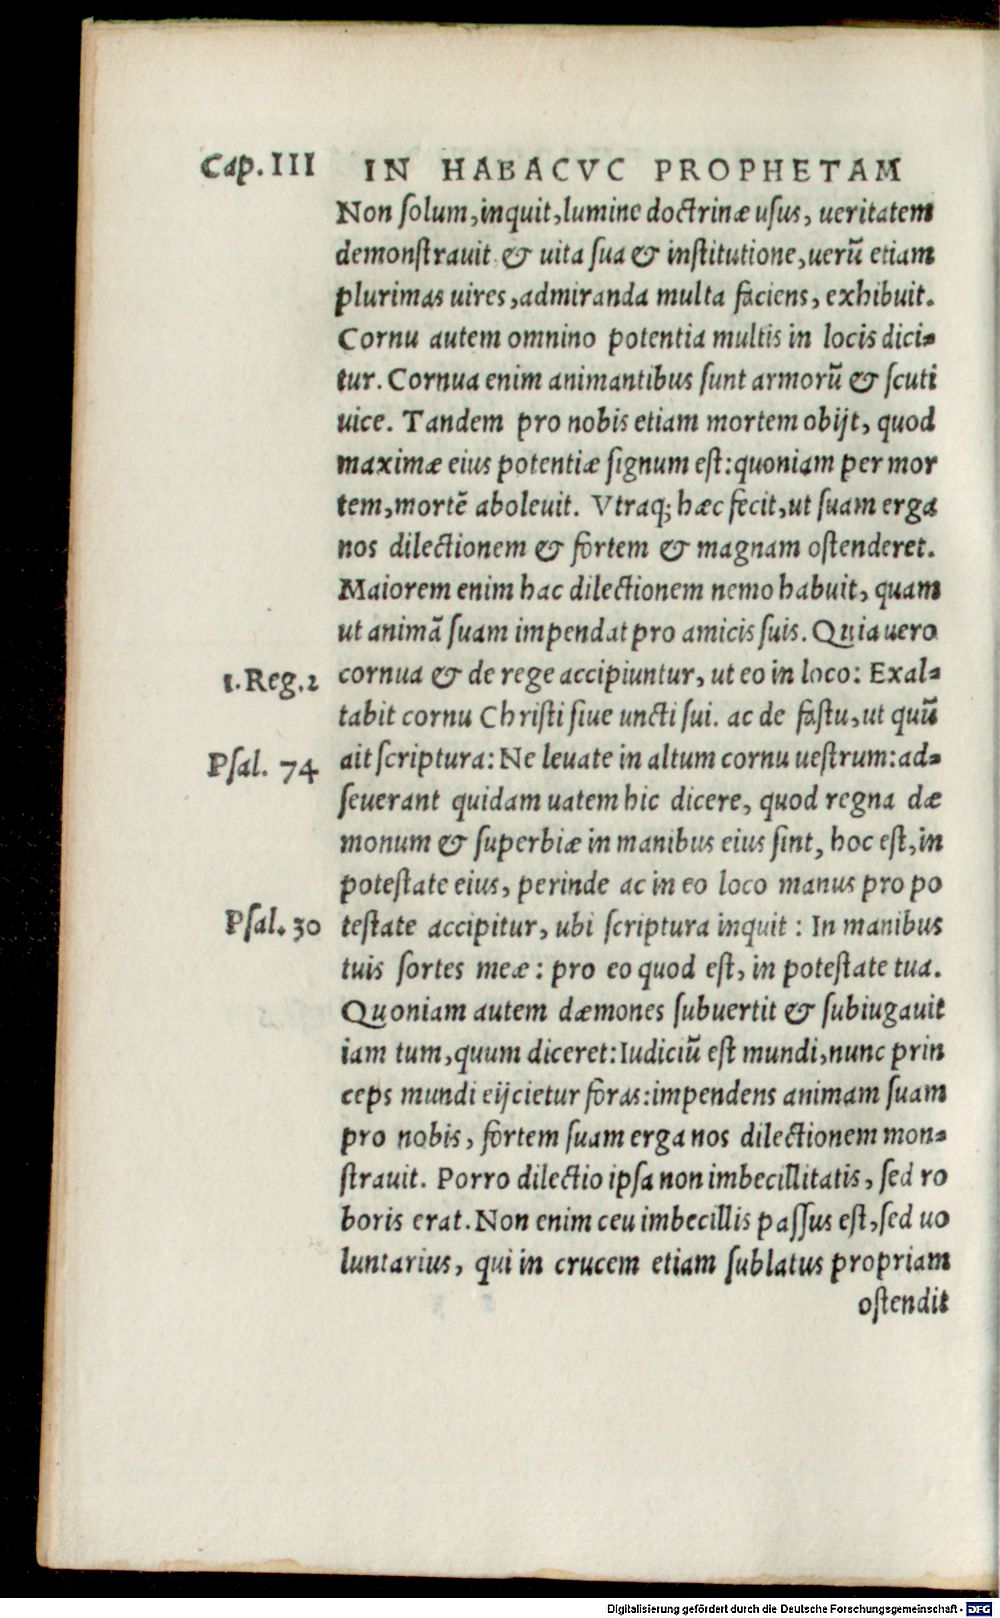 Cap. III IN HABACVC PROPHETAM
Non ſolum, inquit, lumine doctrinæ uſus, ueritatem
demonſtrauit & uita ſua & inſtitutione, uerũ etiam
plurimas uires, admiranda multa faciens, exhibuit.
Cornu autem omnino potentia multis in locis dici-
tur. Cornua enim animantibus ſunt armorũ & ſcuti
uice. Tandem pro nobis etiam mortem obijt, quod
maximæ eius potentiæ ſignum eſt: quoniam per mor
tem, mortẽ aboleuit. Vtraq; hæc fecit, ut ſuam erga
nos dilectionem & fortem & magnam oſtenderet.
Maiorem enim hac dilectionem nemo habuit, quam
ut animã ſuam impendat pro amicis ſuis. Quia uero
1. Reg. 2 cornua & de rege accipiuntur, ut eo in loco: Exal-
tabit cornu Chriſti ſiue uncti ſui. ac de faſtu, ut quũ
Pſal. 74 ait ſcriptura: Ne leuate in altum cornu ueſtrum: ad-
ſeuerant quidam uatem hic dicere, quod regna dæ
monum & ſuperbiæ in manibus eius ſint, hoc eſt, in
poteſtate eius, perinde ac in eo loco manus pro po
Pſal. 30 teſtate accipitur, ubi ſcriptura inquit: In manibus
tuis ſortes meæ: pro eo quod eſt, in poteſtate tua.
Quoniam autem dæmones ſubuertit & ſubiugauit
iam tum, quum diceret: Iudiciũ eſt mundi, nunc prin
ceps mundi eijcietur foras: impendens animam ſuam
pro nobis, fortem ſuam erga nos dilectionem mon-
ſtrauit. Porro dilectio ipſa non imbecillitatis, ſed ro
boris erat. Non enim ceu imbecillis paſſus eſt, ſed uo
luntarius, qui in crucem etiam ſublatus propriam
oſtendit
Digitalisierung gefördert durch die Deutsche Forschungsgemeinschaft - DFG